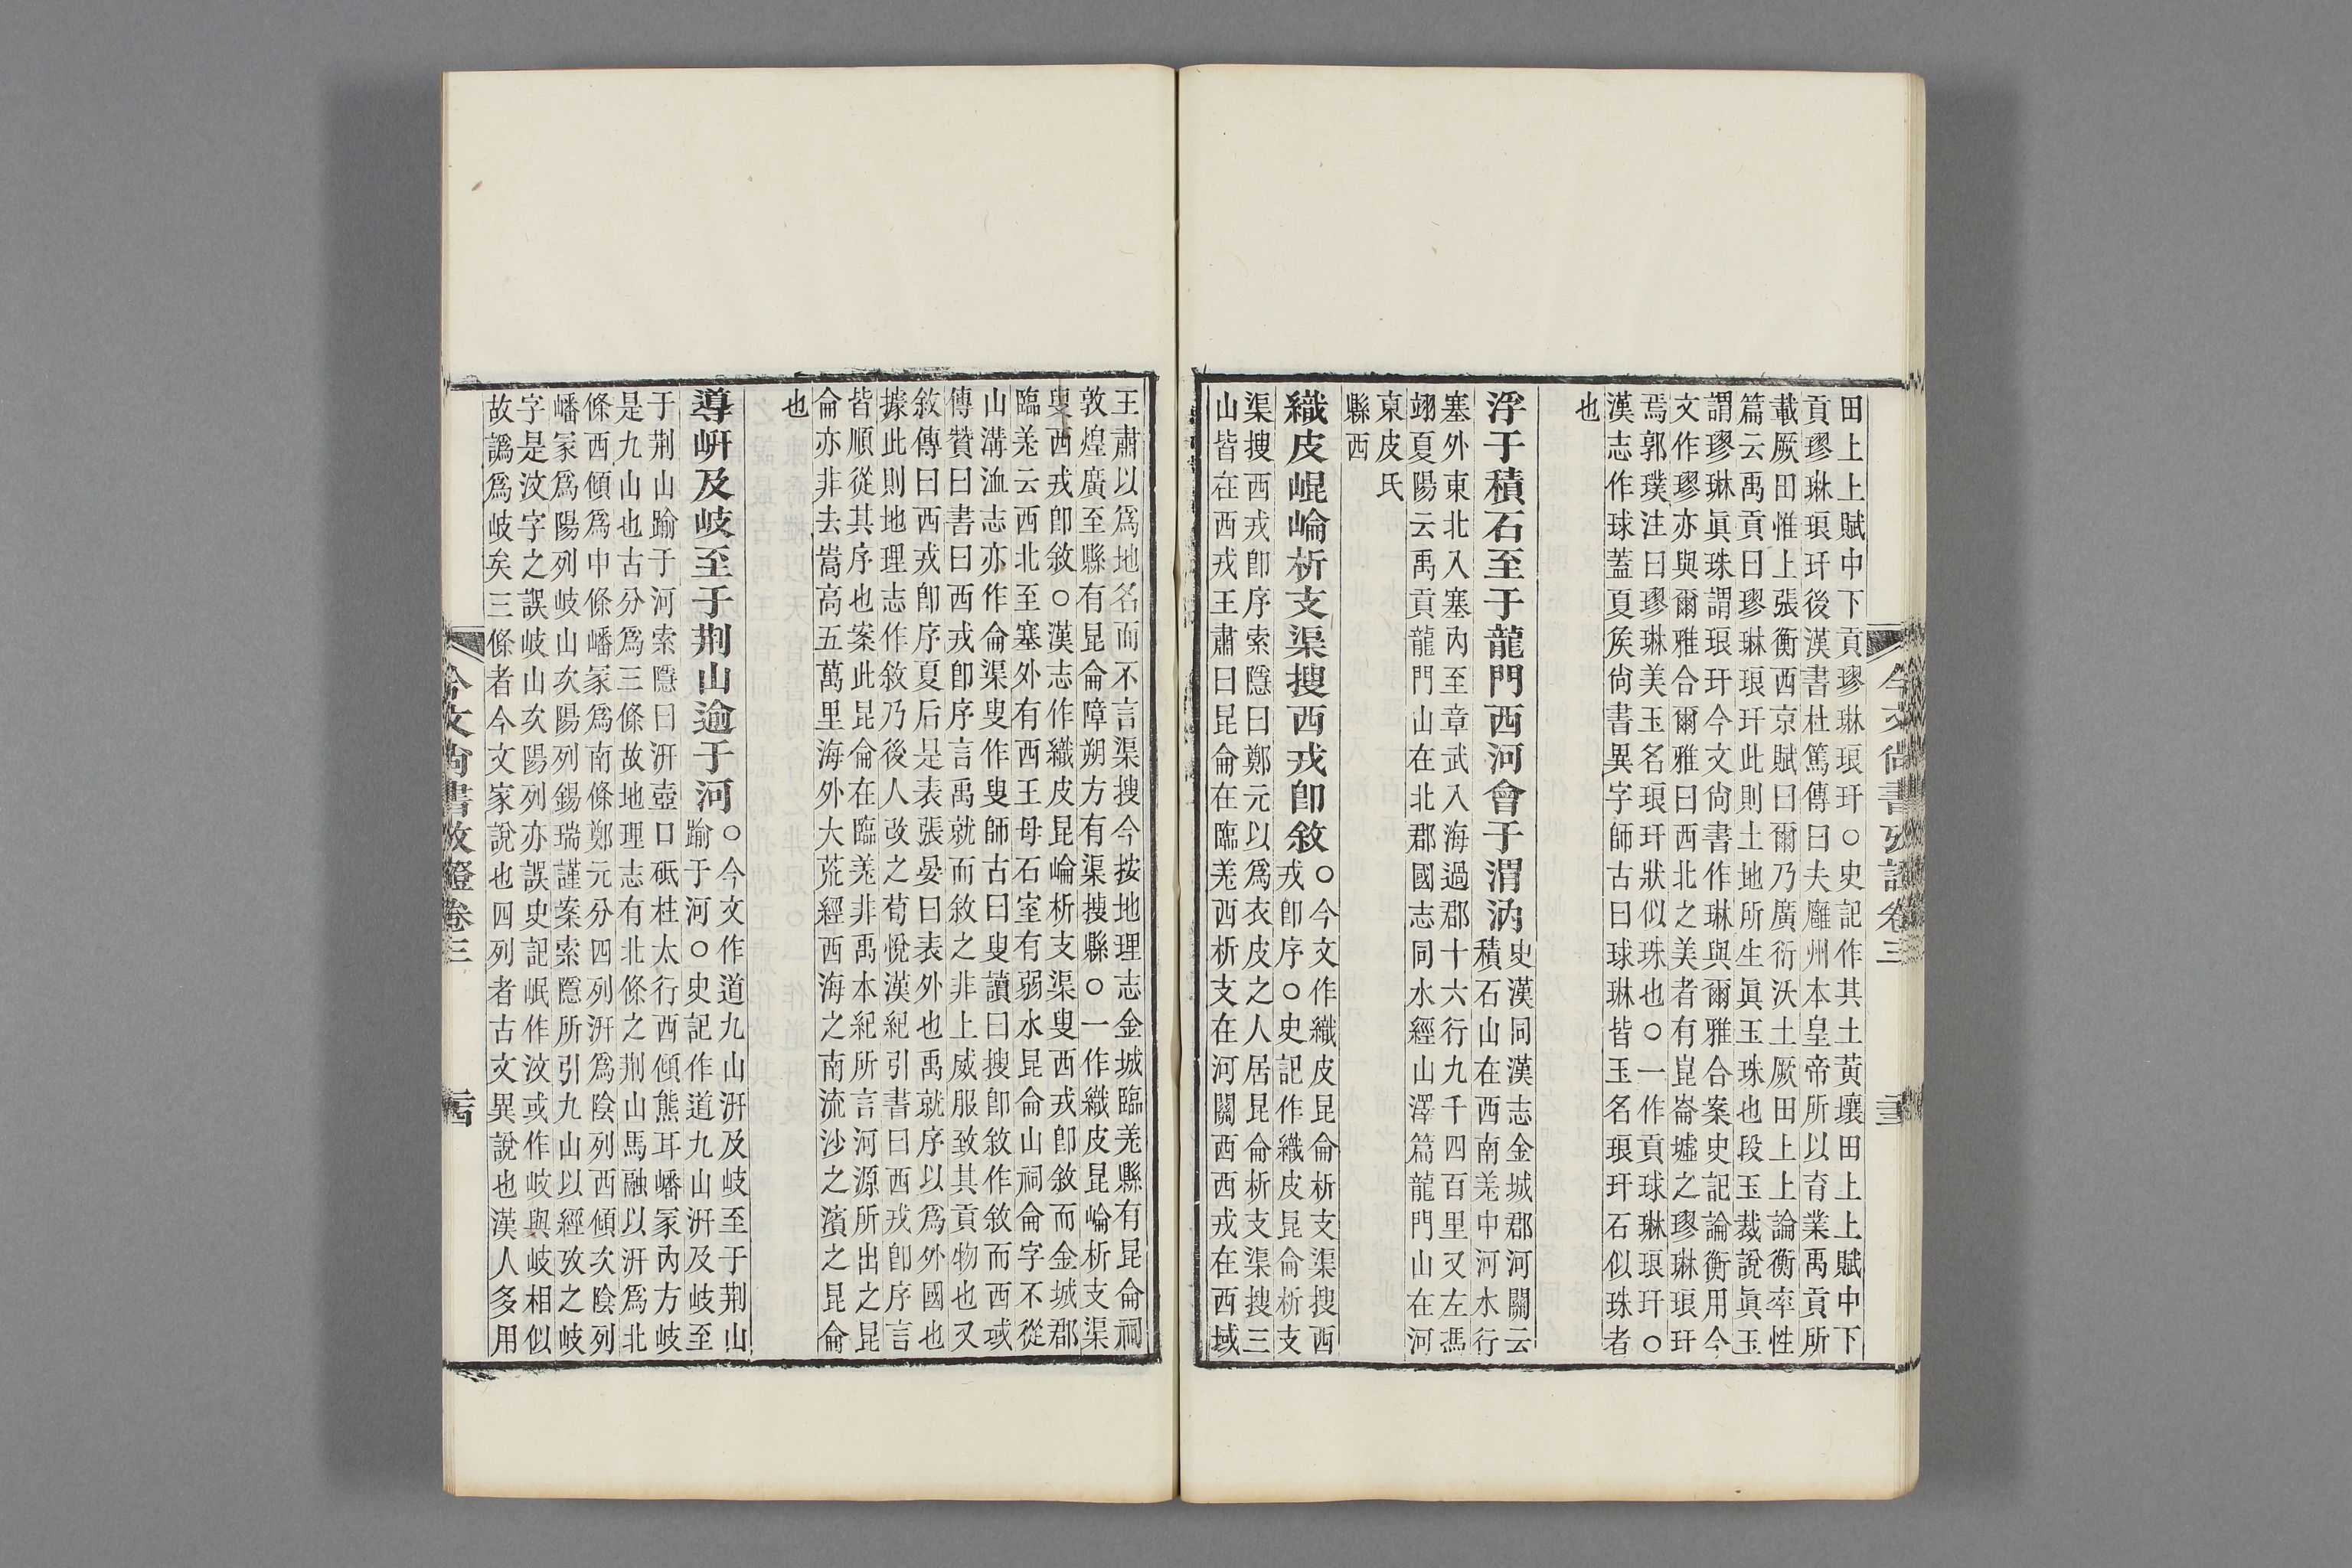 今文尚書攷證卷三
二十三
田上上賦中下貢璆琳琅玕○史記作其土黃壤田上上賦中下
貢璆琳琅玕後漢書杜篤傳曰夫廱州本皇帝所以育業禹貢所
載厥田惟上張衡西京賦曰爾乃廣衍沃土厥田上上論衡率性
篇云禹貢曰璆琳琅玕此則土地所生眞玉珠也段玉裁說眞玉
謂璆琳眞珠謂琅玕今文尙書作琳與爾雅合案史記論衡用今
文作璆亦與爾雅合爾雅曰西北之美者有崑崙墟之璆琳琅玕
焉郭璞注曰璆琳美玉名琅玕狀似珠也○一作貢球琳琅玕○
漢志作球蓋夏矦尙書異字師古曰球琳皆玉名琅玕石似珠者
也
浮于積石至于龍門西河會于渭汭史漢同漢志金城郡河關云
積石山在西南羌中河水行
塞外東北入塞內至章武入海過郡十六行九千四百里又左馮
翊夏陽云禹貢龍門山在北郡國志同水經山澤篇龍門山在河
東皮氏
縣西
織皮崐崘析支渠搜西戎卽敘○今文作織皮昆侖析支渠搜西
戎卽序○史記作織皮昆侖析支
渠搜西戎卽序索隱曰鄭元以爲衣皮之人居昆侖析支渠搜三
山皆在西戎王肅曰昆侖在臨羌西析支在河關西西戎在西域
王肅以爲地名而不言渠搜今按地理志金城臨羌縣有昆侖祠
敦煌廣至縣有昆侖障朔方有渠搜縣○一作織皮昆崘析支渠
叟西戎卽敘○漢志作織皮昆崘析支渠叟西戎卽敘而金城郡
臨羌云西北至塞外有西王母石室有弱水昆侖山祠侖字不從
山溝洫志亦作侖渠叟作叟師古曰叟讀曰搜卽敘作敘而西域
傳贊曰書曰西戎卽序言禹就而敘之非上威服致其貢物也又
敘傳曰西戎卽序夏后是表張晏曰表外也禹就序以爲外國也
據此則地理志作敘乃後人改之荀悅漢紀引書曰西戎卽序言
皆順從其序也案此昆侖在臨羌非禹本紀所言河源所出之昆
侖亦非去嵩高五萬里海外大荒經西海之南流沙之濱之昆侖
也
導岍及岐至于荆山逾于河○今文作道九山汧及岐至于荆山
踰于河○史記作道九山汧及岐至
于荆山踰于河索隱曰汧壺口砥柱太行西傾熊耳嶓冢內方岐
是九山也古分爲三條故地理志有北條之荆山馬融以汧爲北
條西傾爲中條嶓冢爲南條鄭元分四列汧爲陰列西傾次陰列
嶓冢爲陽列岐山次陽列錫瑞謹案索隱所引九山以經攷之岐
字是汶字之誤岐山次陽列亦誤史記岷作汶或作岐與岐相似
故譌爲岐矣三條者今文家說也四列者古文異說也漢人多用
今文尚書攷證卷三
二十四